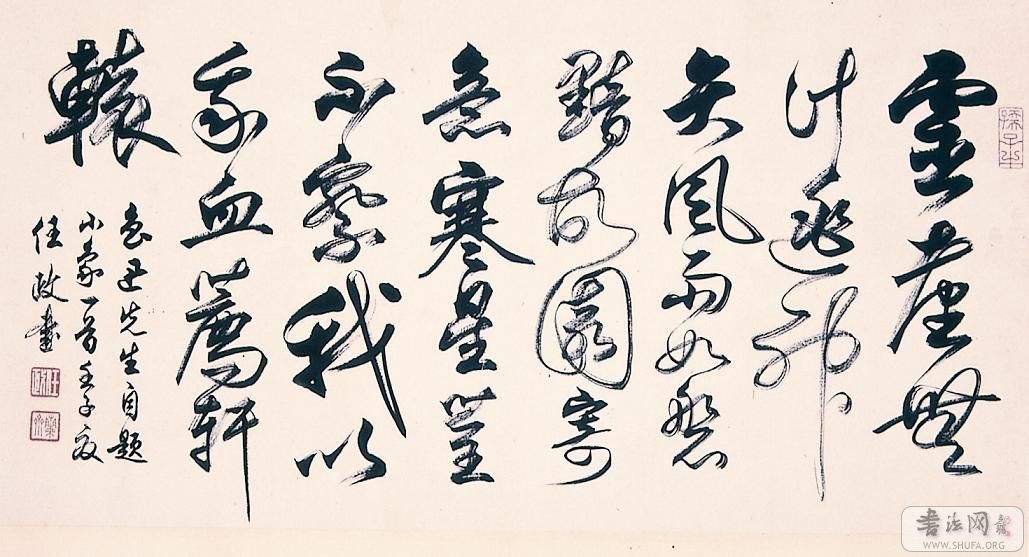 孺子牛
靈臺無
計逃神
矢風雨如磐
黯故園寄
意寒星荃
不察我以
我血薦軒
轅
魯迅先生自題
小象一首壬子夏
任政書
任政
書法网
WWW.SHUFA.ORG